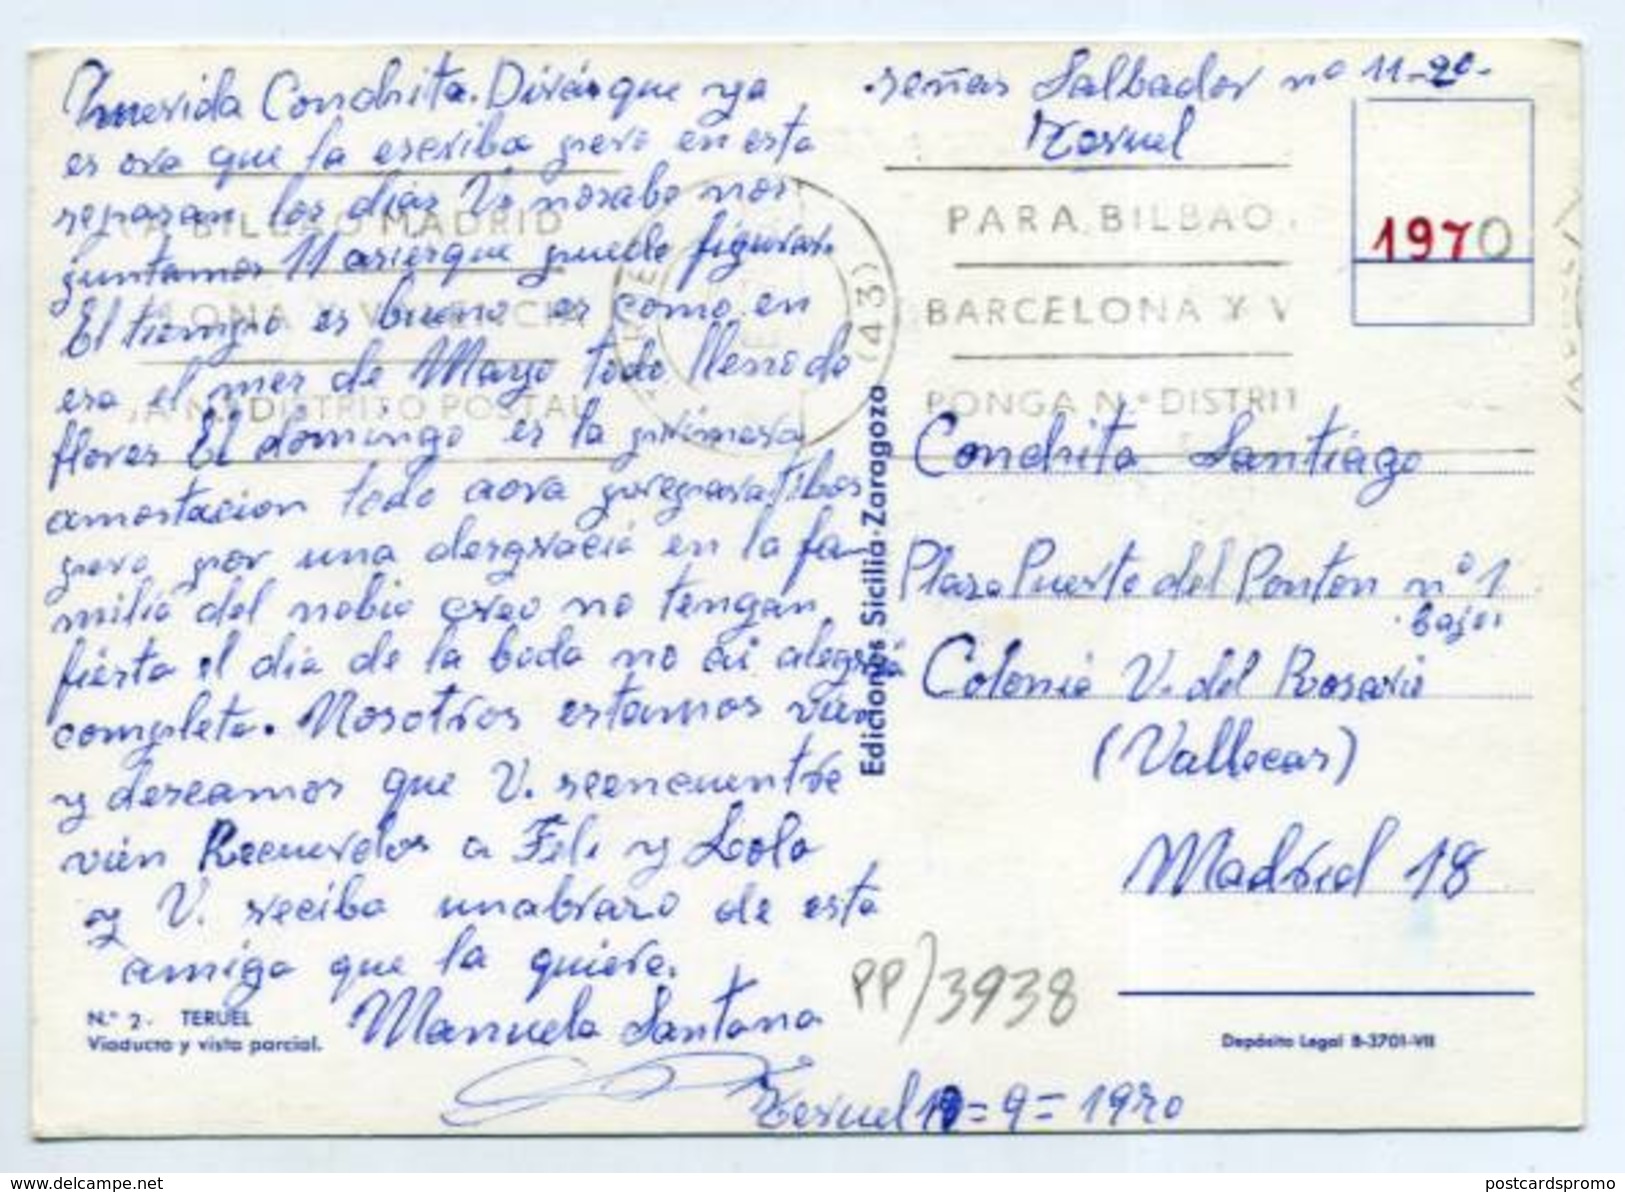 Querida Conchita. Dirás que ya
es ora que la escriba pero en esta
se pasan los dias V. no sabe nos
juntamos 11 asiesque puede figurar.
El tiempo es bueno es como en
era el mes de Mayo todo lleno do
flores El domingo es la primera
amostacion todo aora preparatibos
pero por una desgracia en la fa-
milia del nobio creo no tengan
fiesta el dia de la boda no ai alegria
completa. Nosotros estamos vien
y deseamos que V. se encuentre
vien Recuerdos a Feli y Lola
y V. reciba un abrazo de esta
amiga que la quiere.
Manuela Santana
Teruel 19=9=1970
N.º 2. TERUEL
Viaducto y vista parcial.
señas Salbador nº 11-2º-
Teruel
1970
A BILBAO MADRID
LONA Y VALENCIA
A N.º DISTRITO POSTAL
(43)
PARA BILBAO
BARCELONA Y V
PONGA N.º DISTRIT
Ediciones Sicilia-Zaragoza
Conchita Santiágo
Plaza Puerto del Ponton nº 1
bajo
Colonia V. del Rosario
(Vallecas)
Madrid 18
PP/3938
Depósito Legal B-3701-VII
www.delcampe.net
postcardspromo